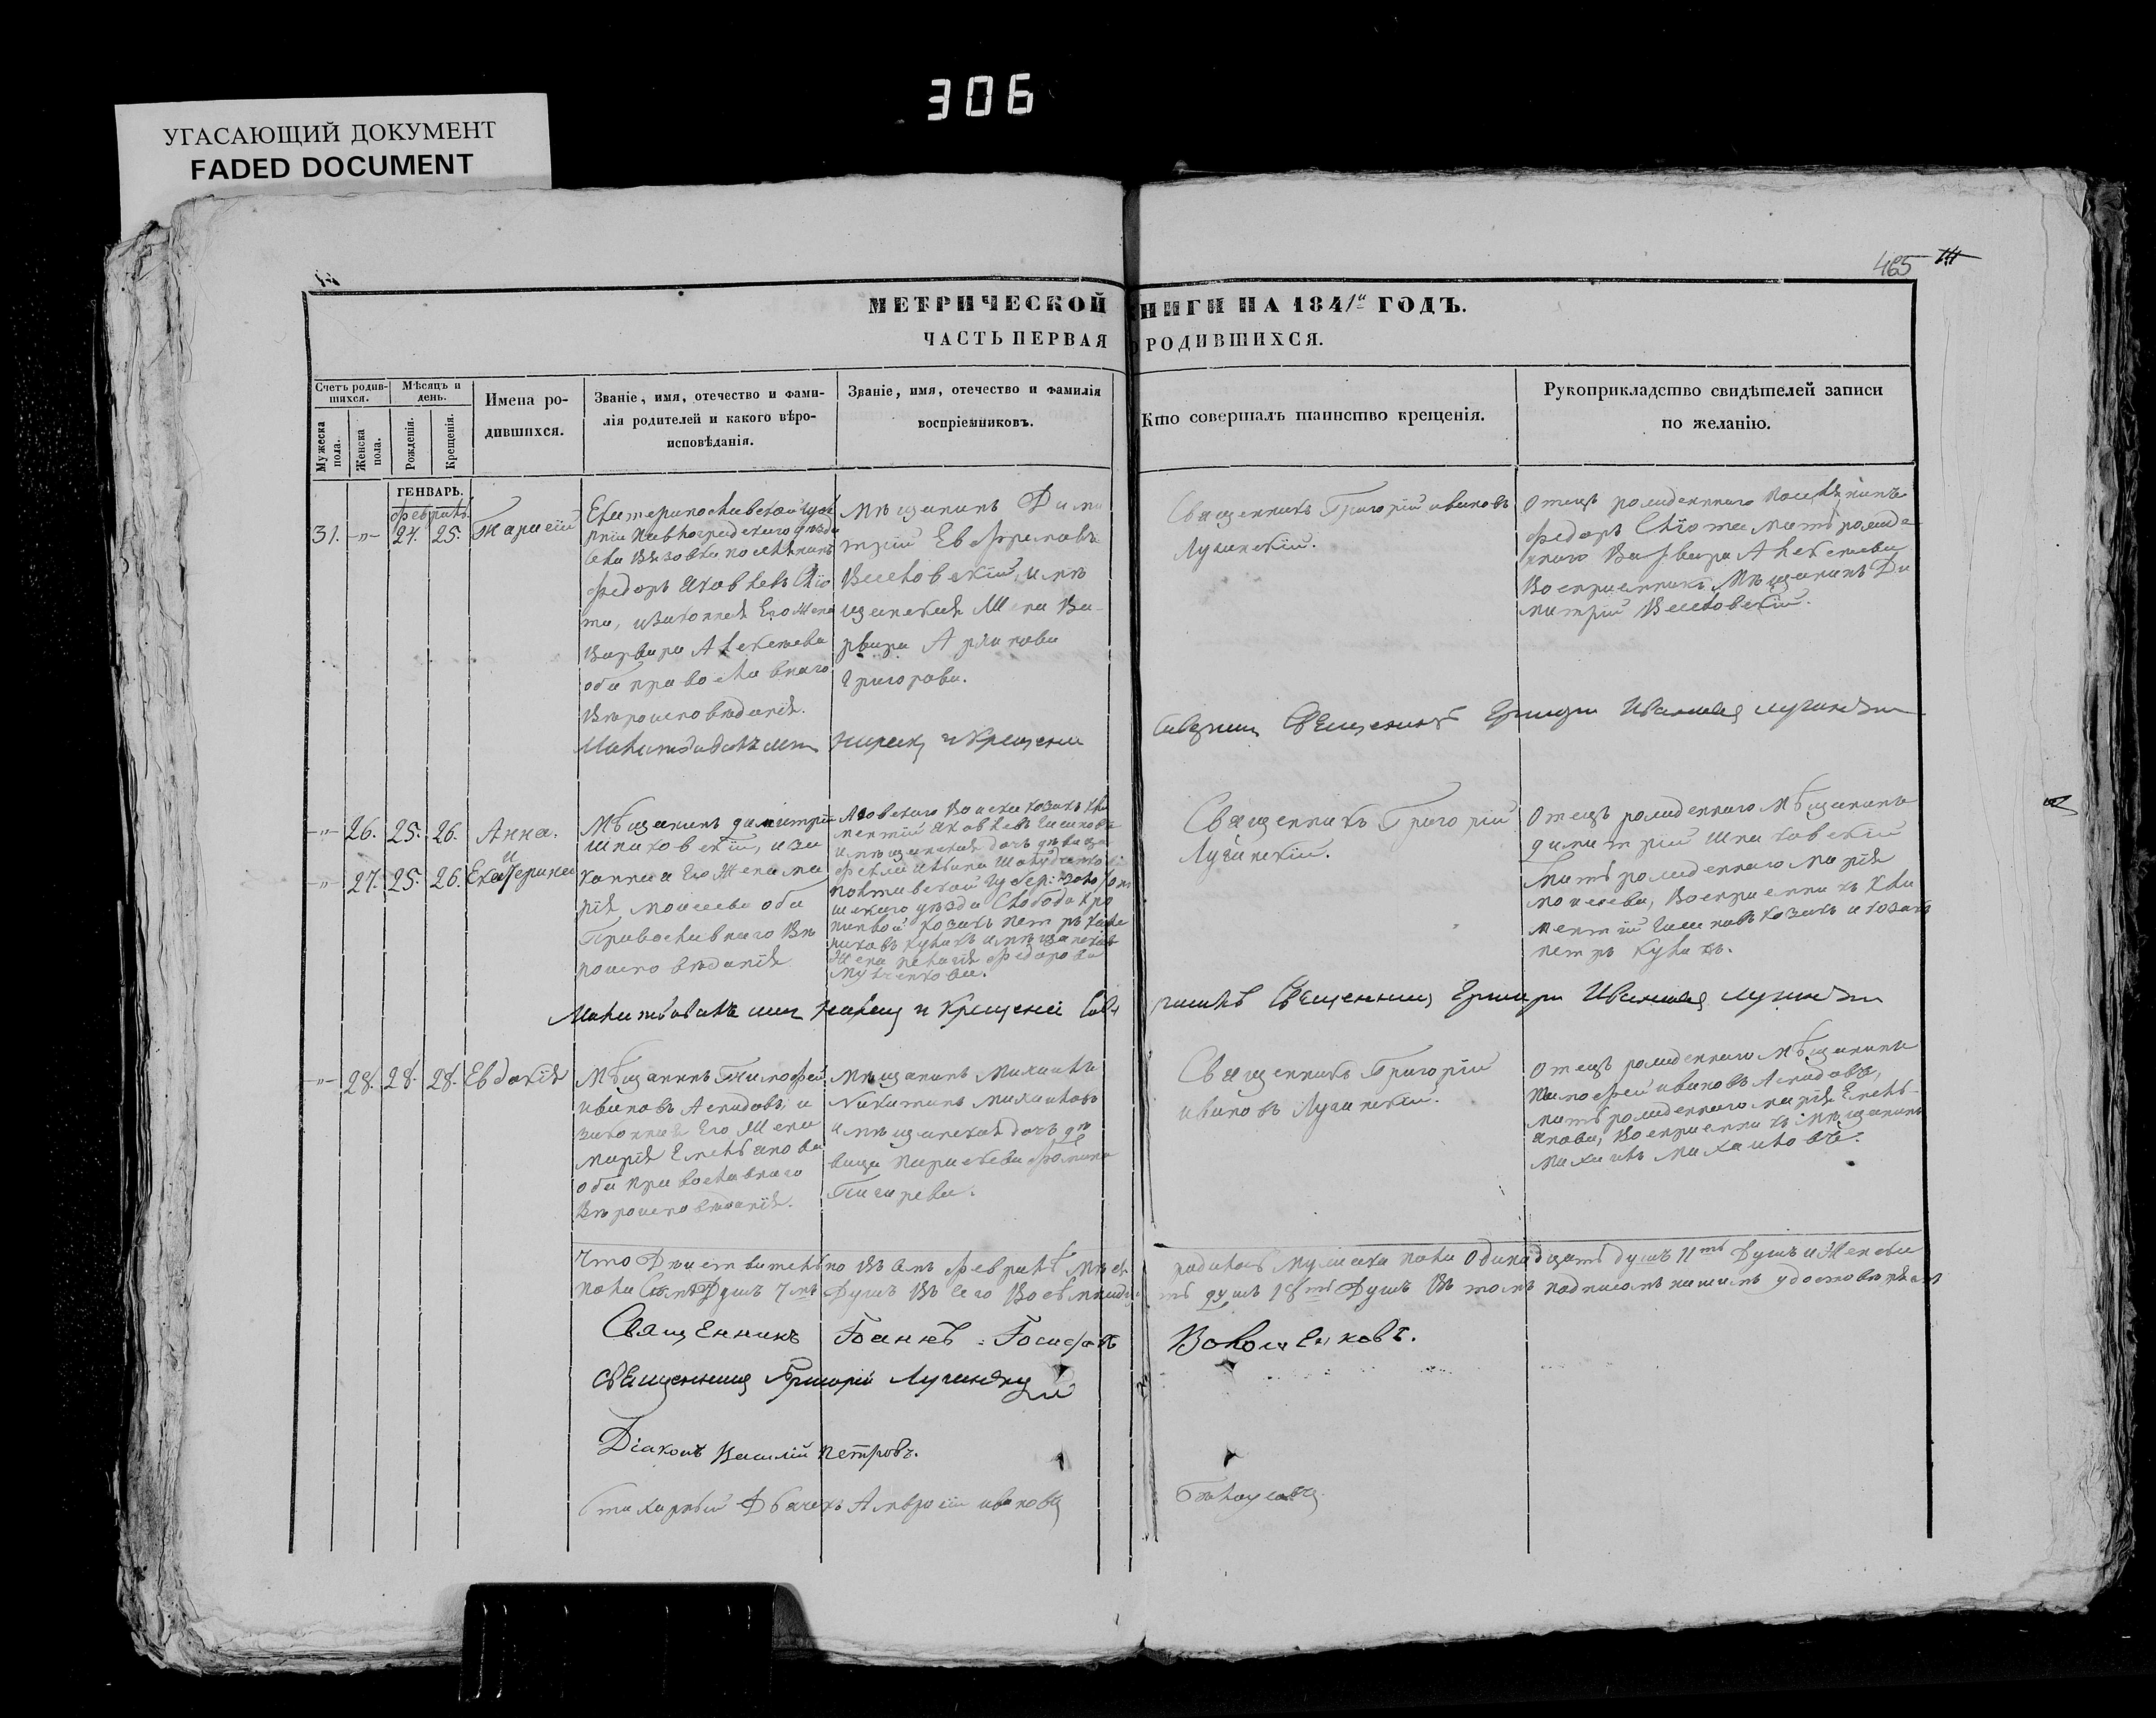 306
УГАСАЮЩИЙ ДОКУМЕНТ
FADED DOCUMENT
465
МЕТРИЧЕСКОЙ КНИГИ НА 1841й ГОДЪ.
ЧАСТЬ ПЕРВАЯ О РОДИВШИХСЯ.
Счетъ родив-
шихся.
Мужеска
пола.
Женска
пола.
Мѣсяцъ и
день.
Рожденія.
Крещенія.
Имена ро-
дившихся.
Званіе, имя, отечество и фами-
лія родителей и какого вѣро-
исповѣданія.
Званіе, имя, отечество и фамилія
воспріемниковъ.
Кто совершалъ таинство крещенія.
Рукоприкладство свидѣтелей записи
по желанію.
ГЕНВАРЬ.
Февраль
31. -"- 24. 25. Тарасій
Екатеринославской губе
рніи Павлоградскаго уѣзда
села Вязовка поселянинъ
Федоръ Яковлевъ
та, изаконная Его Жена
Варвара Алексеева
оба православнаго
Вѣроисповѣданія.
мѣщанинъ Дими
трій Евфрановъ
имѣ
щанская Жена Ва-
рвара
Григорова.
Священникъ Григорій ивановъ
Лучинскій.
Отецъ рожденнаго поселянинъ
Федоръ мать рожде
ннаго Варвара Алексеева
Воспріемникъ Мѣщанинъ Ди
митрій
Молитвовалъ имя нарекъ и Крещеніе совершилъ Священникъ Григорій Ивановъ Лучинскій
-"- 26. 25. 26. Анна.
и
-"- 27. 25. 26. Екатерина
Мѣщанинъ димитрій
Шпаковскій, иза
конная Его Жена ма
рія моисеева оба
Православнаго Вѣ
роисповѣданія
Азовскаго Войска козакъ Кли
ментій Яковлевъ
имѣщанская дочь дѣвица
Полтавской Губер: Золотоно
шскаго уѣзда Слобода Кро
пивной козакъ петръ
кулакъ имѣщанская
Жена пелагія Федорова
Священникъ Григорій
Лучинскій.
Отецъ рожденнаго мѣщанинъ
димитрій Шпаковскій
Мать рожденнаго марія
моисеева, Воспріемникъ Кли
ментій козакъ и козакъ
петръ Кулакъ.
Молитвовалъ имя нарекъ и Крещеніе совершилъ Священникъ Григорій Ивановъ Лучинскій
-"- 28. 28. 28. Евдокія
Мѣщанинъ Тимофей
ивановъ и
законная Его Жена
марія Емельянова
оба православнаго
Вѣроисповѣданія.
мѣщанинъ Михаилъ
Никитинъ михаиловъ
имѣщанская дочь дѣ
вица
Священникъ Григорій
ивановъ Лучинскій.
Отецъ рожденнаго Мѣщанинъ
тимофей ивановъ
мать рожденнаго марія Емель-
янова, Воспріемникъ мѣщанинъ
михаилъ михаиловъ.
Что Дѣйствительно Въ семъ Февралѣ Мѣсяцѣ родилось мужеска пола Одинадцать душъ 11ть Душъ и Женска
пола Семь Душъ 7мь Душъ Всего Восѣмнадцать душъ 18ть Душъ Въ томъ подписомъ нашимъ удостовѣряемъ
Священникъ Іоаннъ Іосифовъ
Священникъ Григорій Лучинскій
Діаконъ Василій Петровъ.
Стихарный Дьячекъ Амвросій ивановъ